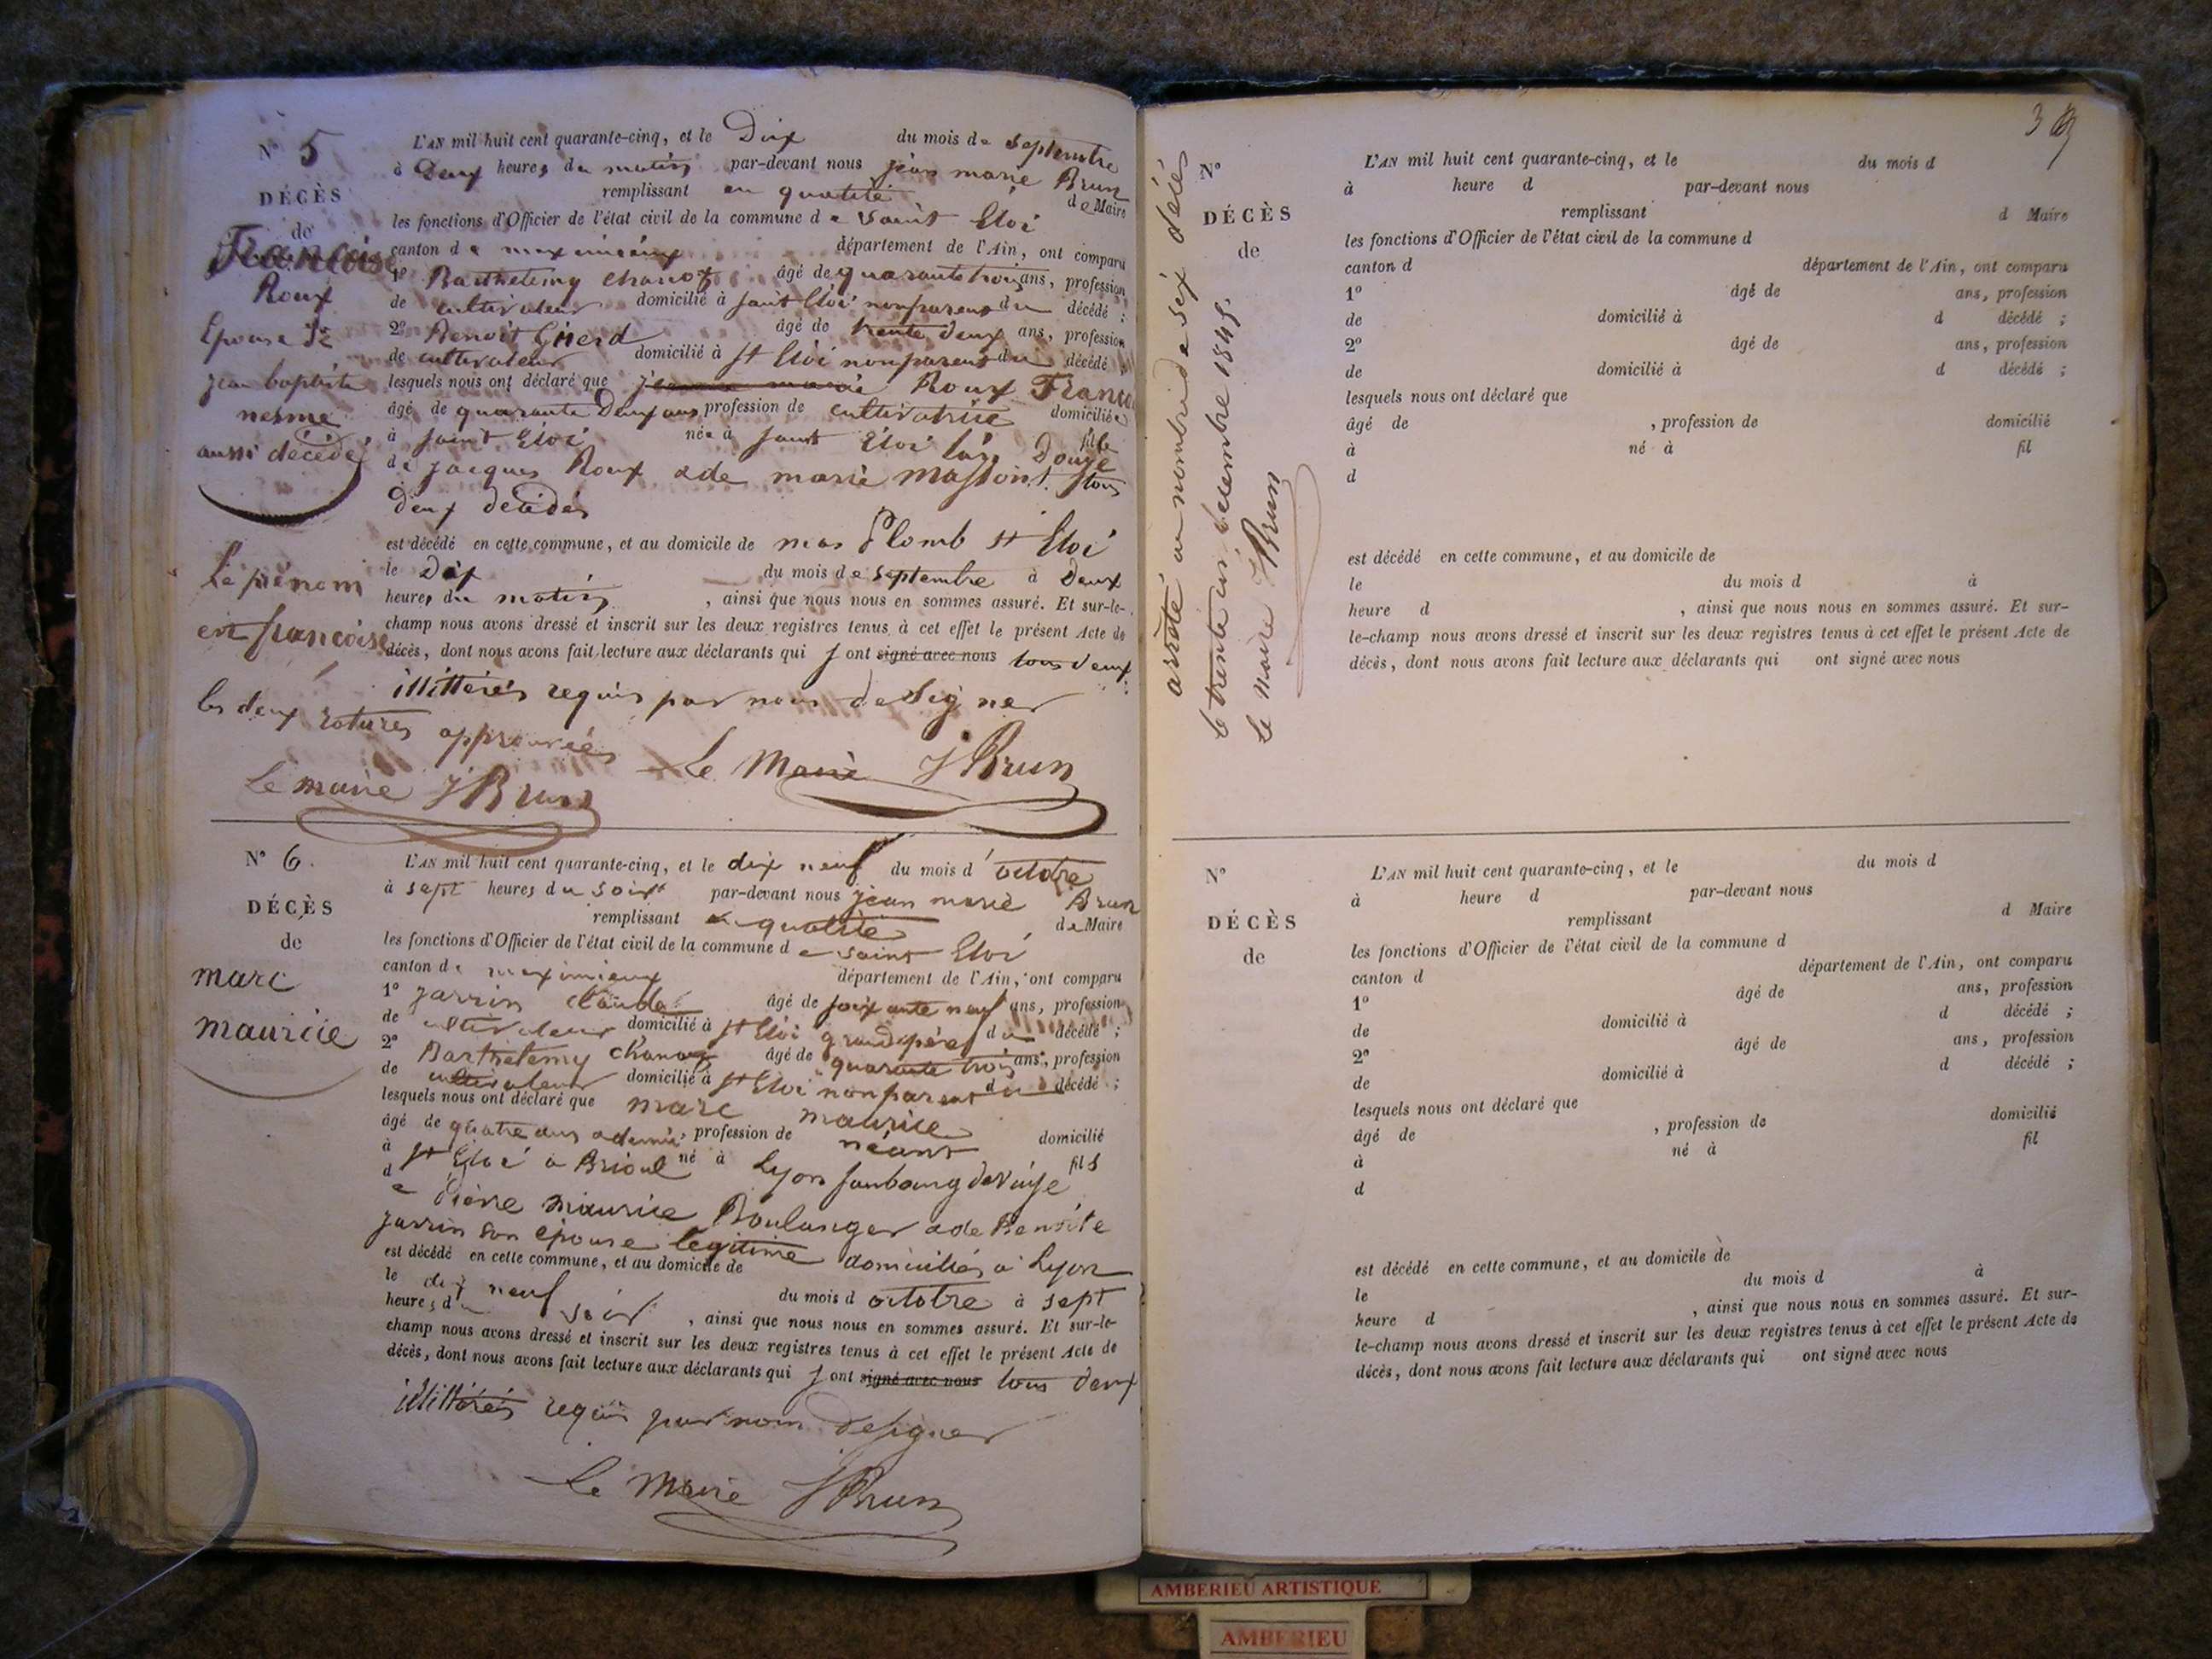 N° 5
DÉCÈS
de
Françoise
Roux
Epouse de
jean baptiste
nesme
aussi décédé
Le prénom
est françoise
les deux ratures approuvées
Le maire J Brun
L'AN mil huit cent quarante-cinq, et le Dix du mois de septembre
à Deux heures du matin par-devant nous jean marie Brun
remplissant en qualité de Maire
les fonctions d'Officier de l'état civil de la commune de saint Eloi
canton de meximieux département de l'Ain, ont comparu
1° Barthelemy chanoz âgé de quarante trois ans, profession
de cultivateur domicilié à saint Eloi non parent du décédé ;
2° Benoit âgé de trente deux ans, profession
de cultivateur domicilié à St Eloi non parent du décédé
lesquels nous ont déclaré que Roux
âgé de quarante Deux ans profession de cultivatrice domiciliée
à saint Eloi née à saint Eloi fille
de jacques Roux & de marie tous
Deux décédés
est décédé en cette commune, et au domicile de mas Plomb St Eloi
le Dix du mois de septembre à Deux
heures du matin , ainsi que nous nous en sommes assuré. Et sur-le-
champ nous avons dressé et inscrit sur les deux registres tenus à cet effet le présent Acte de
décès, dont nous avons fait lecture aux déclarants qui sont signé avec nous tous deux
illittérés requis par nous de signer
Le Maire J Brun
N° 6.
DÉCÈS
de
marc
maurice
L'AN mil huit cent quarante-cinq, et le dix neuf du mois d'octobre
à sept heures du soir par-devant nous jean marie Brun
remplissant en qualité de Maire
les fonctions d'Officier de l'état civil de la commune de saint Eloi
canton de meximieux département de l'Ain, ont comparu
1° jarrin claude âgé de soixante neuf ans, profession
de cultivateur domicilié à St Eloi grand père du décédé ;
2° Barthelemy chanoz âgé de quarante trois ans, profession
de cultivateur domicilié à St Eloi non parent du décédé ;
lesquels nous ont déclaré que marc maurice
âgé de quatre ans & demi, profession de néant domicilié
à St Eloi né à Lyon faubourg de Vaise fils
de Pierre maurice Boulanger & de Benoite
jarrin son épouse légitime domiciliés à Lyon
est décédé en cette commune, et au domicile de
le dix neuf du mois d octobre à sept
heures du soir , ainsi que nous nous en sommes assuré. Et sur-le-
champ nous avons dressé et inscrit sur les deux registres tenus à cet effet le présent Acte de
décès, dont nous avons fait lecture aux déclarants qui sont signé avec nous tous deux
illittérés requis par nous de signer
Le Maire J Brun
arrêté au nombre de six décés
le trente un décembre 1845.
Le Maire J Brun
N°
DÉCÈS
de
L'AN mil huit cent quarante-cinq, et le du mois d
à heure d par-devant nous
remplissant d Maire
les fonctions d'Officier de l'état civil de la commune d
canton d département de l'Ain, ont comparu
1° âgé de ans, profession
de domicilié à d décédé ;
2° âgé de ans, profession
de domicilié à d décédé ;
lesquels nous ont déclaré que
âgé de , profession de domicilié
à né à fil
d
est décédé en cette commune, et au domicile de
le du mois d à
heure d , ainsi que nous nous en sommes assuré. Et sur-
le-champ nous avons dressé et inscrit sur les deux registres tenus à cet effet le présent Acte de
décès, dont nous avons fait lecture aux déclarants qui ont signé avec nous
N°
DÉCÈS
de
L'AN mil huit cent quarante-cinq, et le du mois d
à heure d par-devant nous
remplissant d Maire
les fonctions d'Officier de l'état civil de la commune d
canton d département de l'Ain, ont comparu
1° âgé de ans, profession
de domicilié à d décédé ;
2° âgé de ans, profession
de domicilié à d décédé ;
lesquels nous ont déclaré que
âgé de , profession de domicilié
à né à fil
d
est décédé en cette commune, et au domicile de
le du mois d à
heure d , ainsi que nous nous en sommes assuré. Et sur-
le-champ nous avons dressé et inscrit sur les deux registres tenus à cet effet le présent Acte de
décès, dont nous avons fait lecture aux déclarants qui ont signé avec nous
AMBERIEU ARTISTIQUE
AMBERIEU